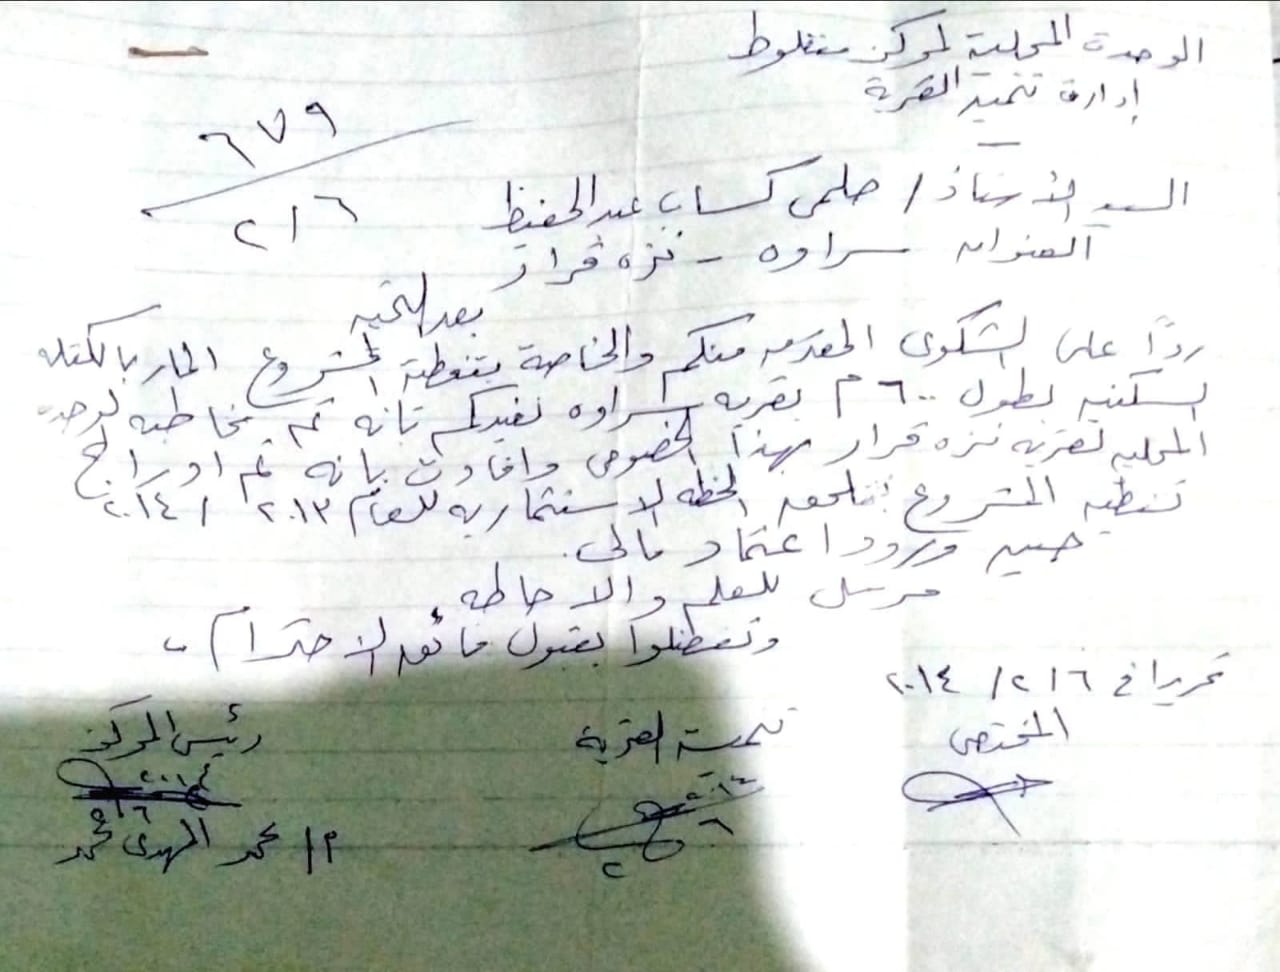 الوحدة المحلية لمركز منفلوط
إدارة تنمية القرية
٦٧٩
٢/٦
السيد الأستاذ / حلمى كساب عبد الحفيظ
العنوان سراوه - نزه قرار
بعد التحيه
رداً على الشكوى المقدمه منكم والخاصة بتغطية المشروع المار بالكتله
السكنيه بطول ٦٠٠ م بقريه سراوه نفيدكم بانه تم مخاطبه الوحده
المحليه لقريه نزه قرار بهذا الخصوص وافادت بانه تم ادراج
تغطيه المشروع بملحق الخطه الاستثماريه للعام ٢٠١٣ / ٢٠١٤
حسب ورود اعتماد مالى .
مرسل للعلم والاحاطه
وتفضلوا بقبول فائق الاحترام ،،
تحريرا فى ٢/٦ / ٢٠١٤
المختص
تنمية القرية
رئيس المركز
م / محمد المهدى محمد